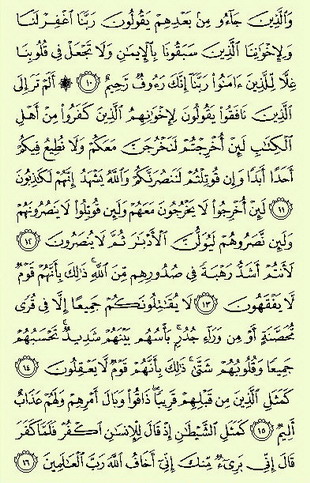 وَالَّذِينَ جَآءُو مِنۢ بَعۡدِهِمۡ يَقُولُونَ رَبَّنَا ٱغۡفِرۡ لَنَا
وَلِإِخۡوَٰنِنَا ٱلَّذِينَ سَبَقُونَا بِٱلۡإِيمَٰنِ وَلَا تَجۡعَلۡ فِي قُلُوبِنَا
غِلّٗا لِّلَّذِينَ ءَامَنُواْ رَبَّنَآ إِنَّكَ رَءُوفٞ رَّحِيمٌ ١٠ ۞ أَلَمۡ تَرَ إِلَى
ٱلَّذِينَ نَافَقُواْ يَقُولُونَ لِإِخۡوَٰنِهِمُ ٱلَّذِينَ كَفَرُواْ مِنۡ أَهۡلِ
ٱلۡكِتَٰبِ لَئِنۡ أُخۡرِجۡتُمۡ لَنَخۡرُجَنَّ مَعَكُمۡ وَلَا نُطِيعُ فِيكُمۡ
أَحَدًا أَبَدٗا وَإِن قُوتِلۡتُمۡ لَنَنصُرَنَّكُمۡ وَٱللَّهُ يَشۡهَدُ إِنَّهُمۡ لَكَٰذِبُونَ
١١ لَئِنۡ أُخۡرِجُواْ لَا يَخۡرُجُونَ مَعَهُمۡ وَلَئِن قُوتِلُواْ لَا يَنصُرُونَهُمۡ
وَلَئِن نَّصَرُوهُمۡ لَيُوَلُّنَّ ٱلۡأَدۡبَٰرَ ثُمَّ لَا يُنصَرُونَ ١٢
لَأَنتُمۡ أَشَدُّ رَهۡبَةٗ فِي صُدُورِهِم مِّنَ ٱللَّهِۚ ذَٰلِكَ بِأَنَّهُمۡ قَوۡمٞ
لَّا يَفۡقَهُونَ ١٣ لَا يُقَٰتِلُونَكُمۡ جَمِيعًا إِلَّا فِي قُرٗى
مُّحَصَّنَةٍ أَوۡ مِن وَرَآءِ جُدُرِۭۚ بَأۡسُهُم بَيۡنَهُمۡ شَدِيدٞۚ تَحۡسَبُهُمۡ
جَمِيعٗا وَقُلُوبُهُمۡ شَتَّىٰۚ ذَٰلِكَ بِأَنَّهُمۡ قَوۡمٞ لَّا يَعۡقِلُونَ ١٤
كَمَثَلِ ٱلَّذِينَ مِن قَبۡلِهِمۡ قَرِيبٗاۖ ذَاقُواْ وَبَالَ أَمۡرِهِمۡ وَلَهُمۡ عَذَابٌ
أَلِيمٞ ١٥ كَمَثَلِ ٱلشَّيۡطَٰنِ إِذۡ قَالَ لِلۡإِنسَٰنِ ٱكۡفُرۡ فَلَمَّا كَفَرَ
قَالَ إِنِّي بَرِيٓءٞ مِّنكَ إِنِّيٓ أَخَافُ ٱللَّهَ رَبَّ ٱلۡعَٰلَمِينَ ١٦